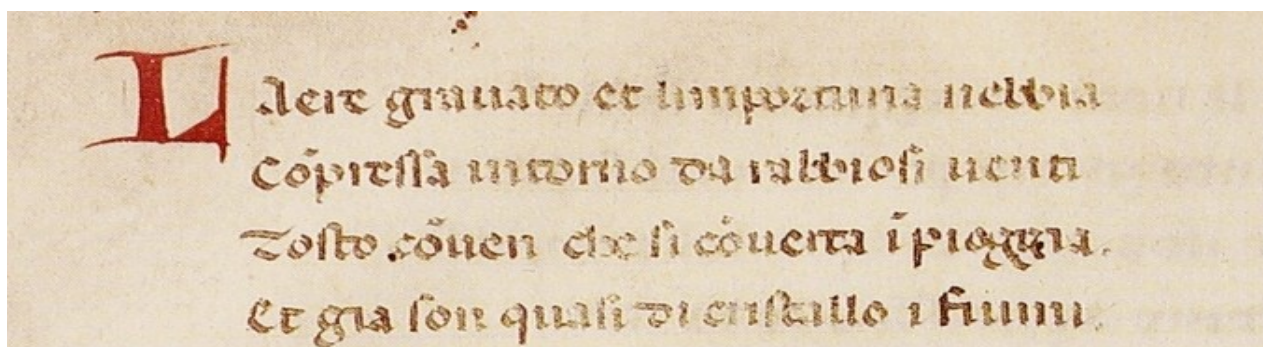 Laere grauato et limportuna nebbia
Cōpressa intorno da rabbiosi uenti
Tosto cōuen che si cōuerta ī pioggia.
Et gia son quasi di cristallo i fiumi.